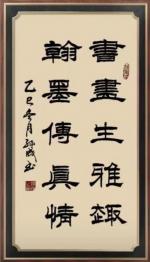 書畫生雅趣
翰墨傳真情
乙巳冬月